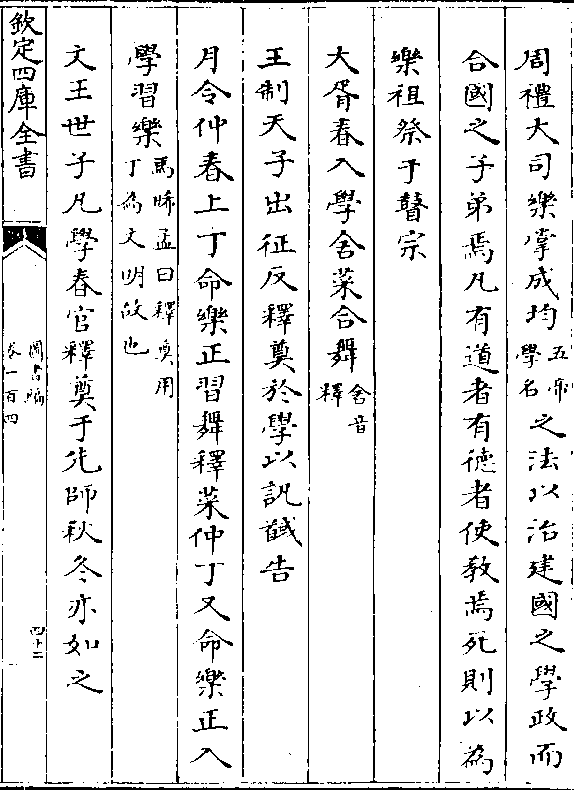 周禮大司樂掌成均五帝學名之法以治建國之學政而
合國之子弟焉凡有道者有徳者使教焉死則以為
樂祖祭于瞽宗
大胥春入學舍菜合舞舍音釋
王制天子出征反釋奠於學以訊馘告
月令仲春上丁命樂正習舞釋菜仲丁又命樂正入
學習樂馬晞孟曰釋奠用丁為文明故也
文王世子凡學春官釋奠于先師秋冬亦如之
欽定四庫全書
圖書編
卷一百四
四十二